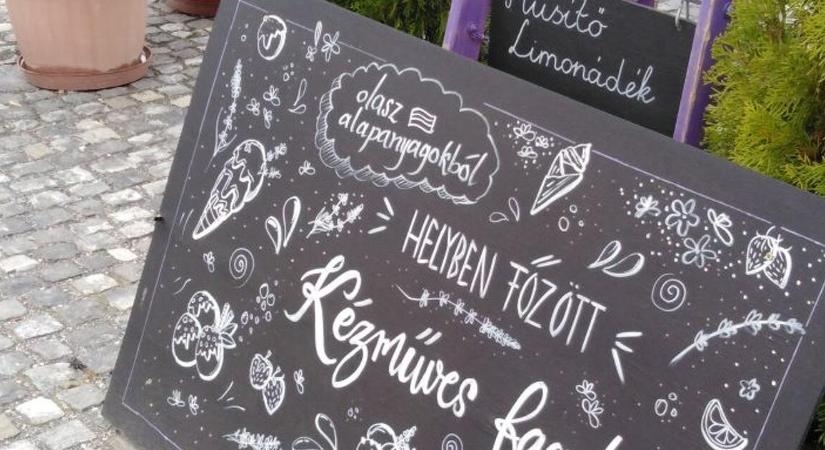 Hűsítő
Limonádék
olasz
alapanyagokból
HELYBEN FŐZÖTT
Kézműves